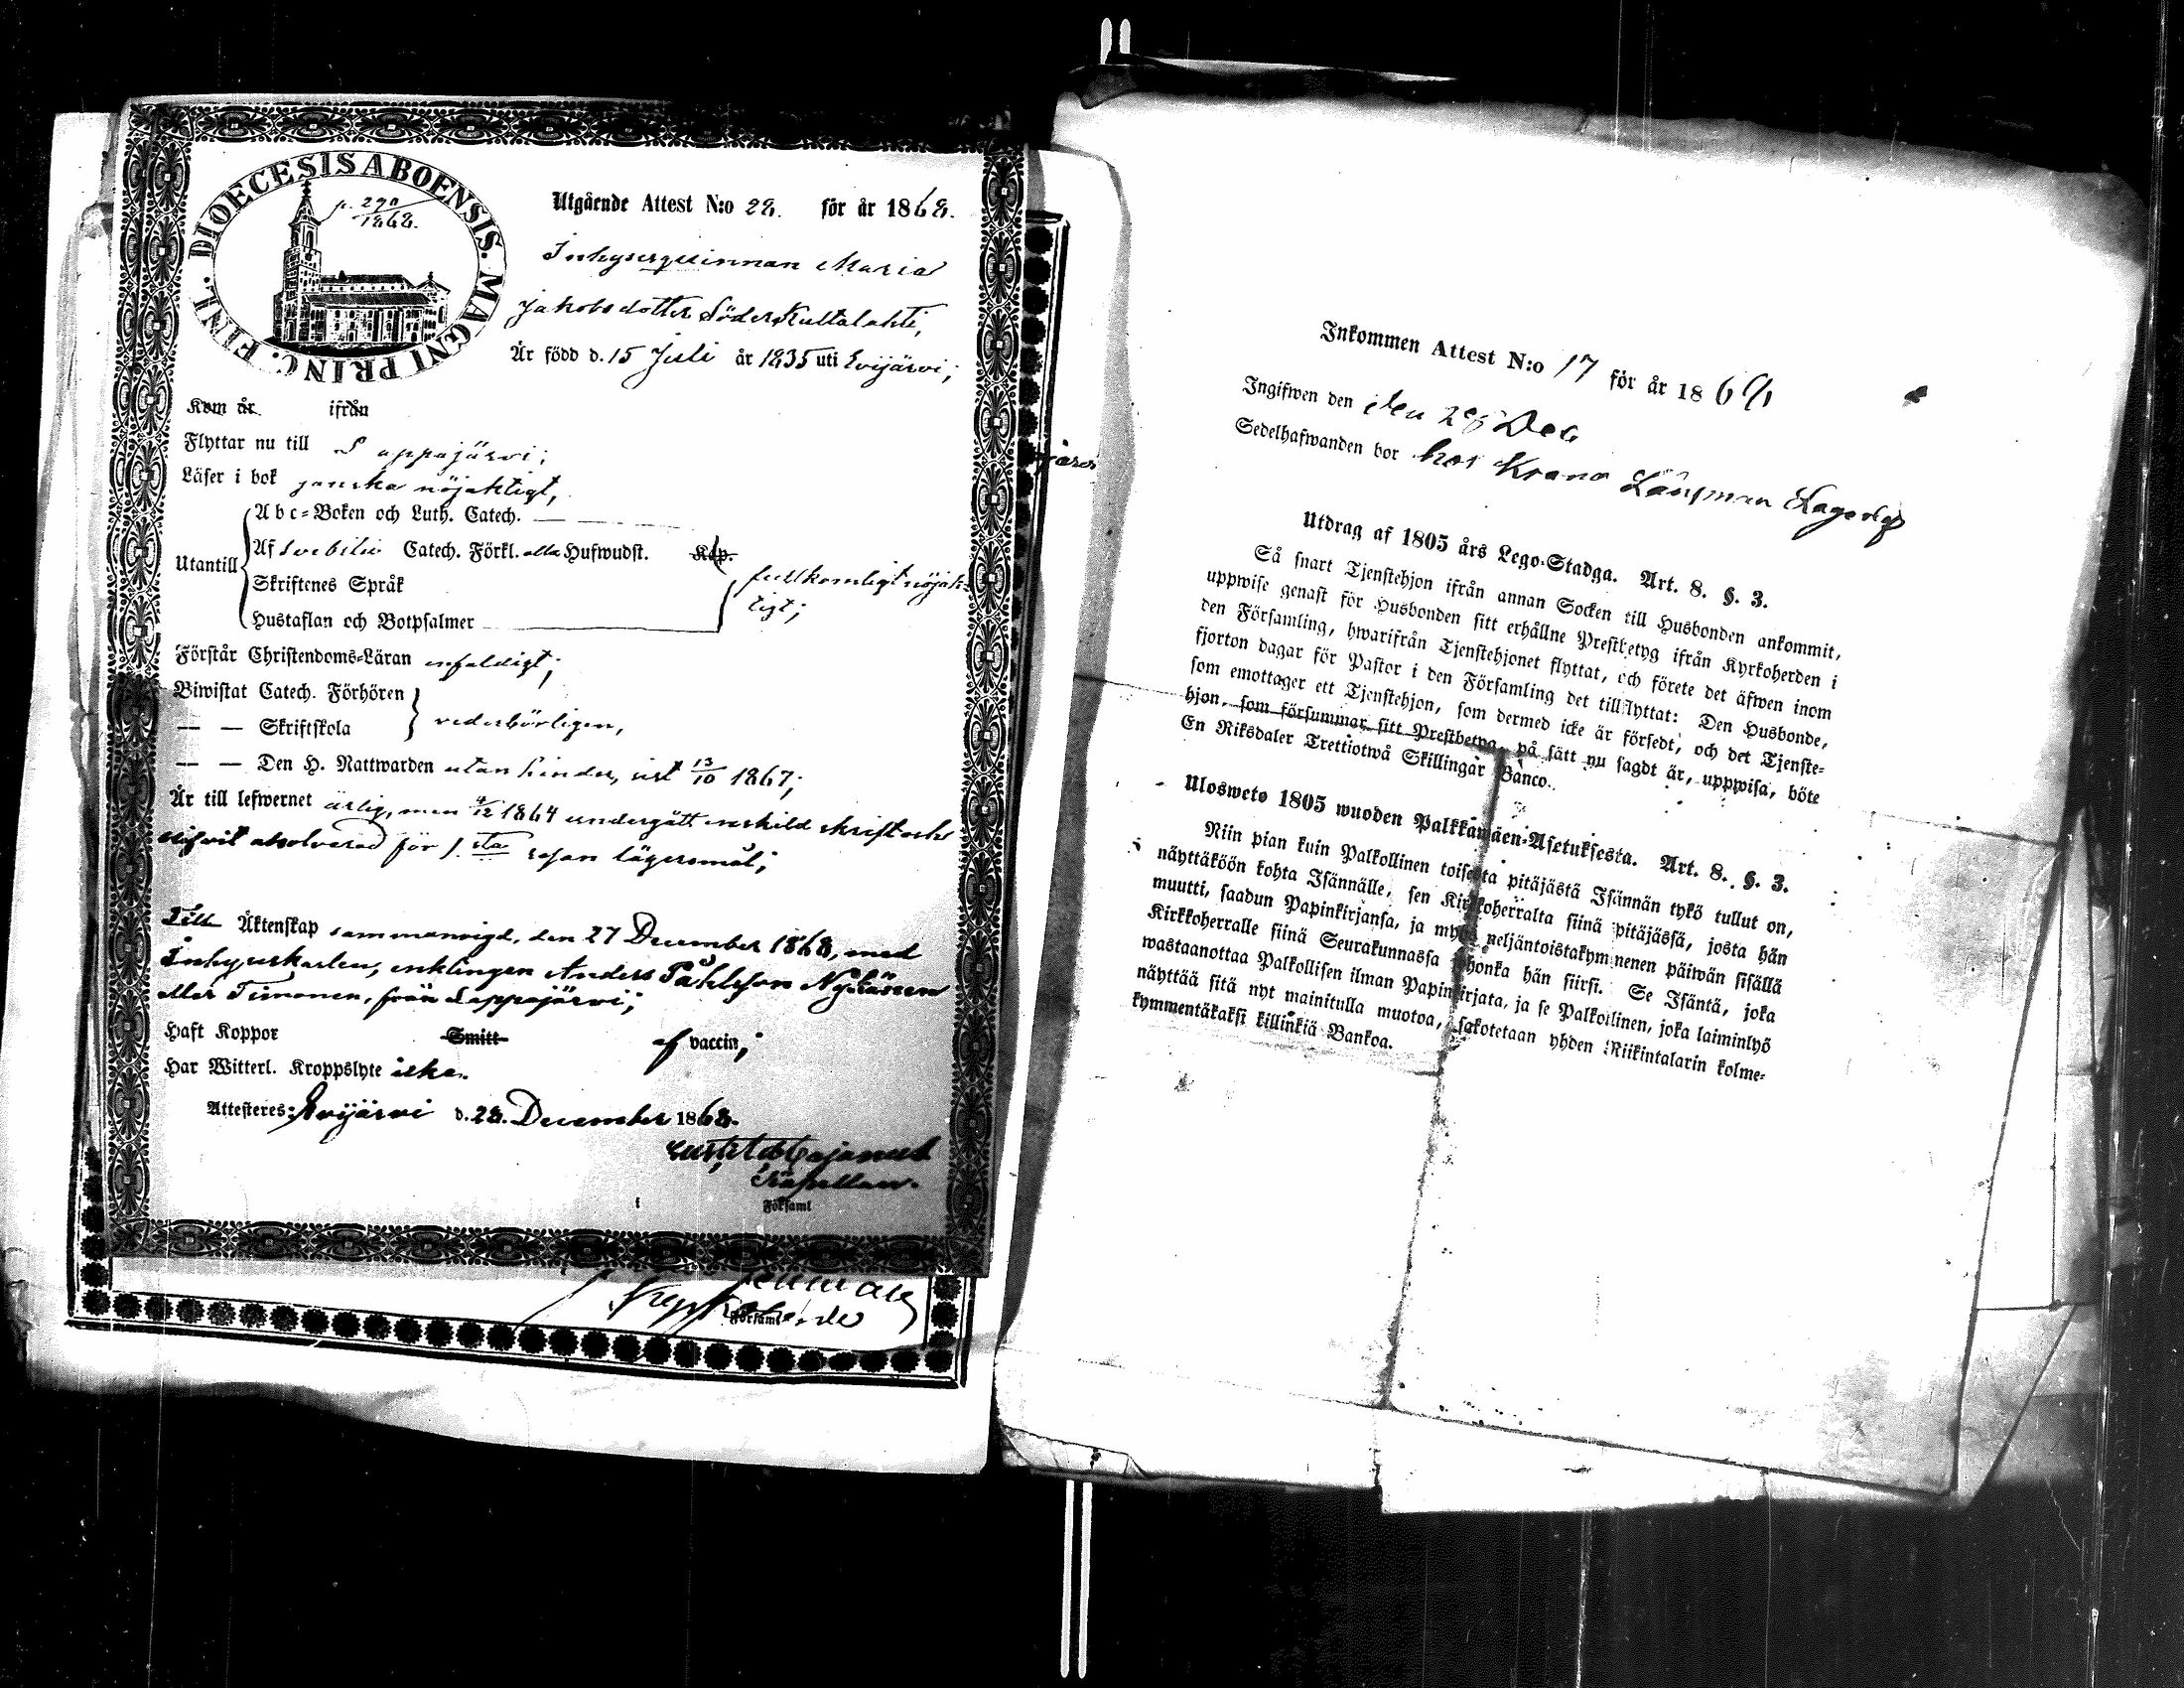 DIOECESIS ABOENSIS. MAGNI PRINC. FINL.
p. 270
1868.
Utgående Attest N:o 28. för år 1868.
Inhysesqvinnan Maria
Jakobsdotter Söder Kultalahti,
Är född d. 15 Juli år 1835 uti Evijärvi;
Kom år. ifrån
Flyttar nu till Lappajärvi;
Läser i bok ganska nöjaktigt,
Utantill
Abc-Boken och Luth. Catech.
Af Svebilii Catech. Förkl. alla Hufwudst. Kap.
Skriftenes Språk
Hustaflan och Botpsalmer
fullkomligt nöjak-
tigt;
Förstår Christendoms-Läran enfaldigt;
Biwistat Catech. Förhören
— — Skriftskola
vederbörligen,
— — Den H. Nattwarden utan hinder, sist 13/10 1867;
Är till lefwernet ärlig, men 4/12 1864 undergått enskild skrift och
blifvit absolverad för 1. sta resan lägersmål;
Till Äktenskap sammanvigd, den 27 December 1868, med
Inhyseskarlen, enklingen Anders Påhlsson Nykänen
eller Timonen, från Lappajärvi;
Haft Koppor Smitt af vaccin;
Har Witterl. Kroppslyte icke.
Attesteres: Evijärvi d. 28. December 1868.
Cajanus
Kapellan.
Församl
Församl
järvi
Inkommen Attest N:o 17 för år 1868
Ingifwen den den 28 Dec
Sedelhafwanden bor hos Krono Länsman Lagerlöf
Utdrag af 1805 års Lego-Stadga. Art. 8. §. 3.
Så snart Tjenstehjon ifrån annan Socken till Husbonden ankommit,
uppwise genast för Husbonden sitt erhållne Prestbetyg ifrån Kyrkoherden i
den Församling, hwarifrån Tjenstehjonet flyttat, och förete det äfwen inom
fjorton dagar för Pastor i den Församling det tillflyttat: Den Husbonde,
som emottager ett Tjenstehjon, som dermed icke är försedt, och det Tjenste-
hjon, som försummar sitt Prestbetyg, på sätt nu sagdt är, uppwisa, böte
En Riksdaler Trettiotwå Skillingar Banco.
Ulosweto 1805 wuoden Palkkawäen-Asetuksesta. Art. 8. §. 3.
Niin pian kuin Palkollinen toisesta pitäjästä Isännän tykö tullut on,
näyttäköön kohta Isännälle, sen Kirkkoherralta siinä pitäjässä, josta hän
muutti, saadun Papinkirjansa, ja myös neljäntoistakymmenen päiwän sisällä
Kirkkoherralle siinä Seurakunnassa johonka hän siirsi. Se Isäntä, joka
wastaanottaa Palkollisen ilman Papinkirjata, ja se Palkollinen, joka laiminlyö
näyttää sitä nyt mainitulla muotoa, sakotetaan yhden Riikintalarin kolme-
kymmentäkaksi killinkiä Bankoa.